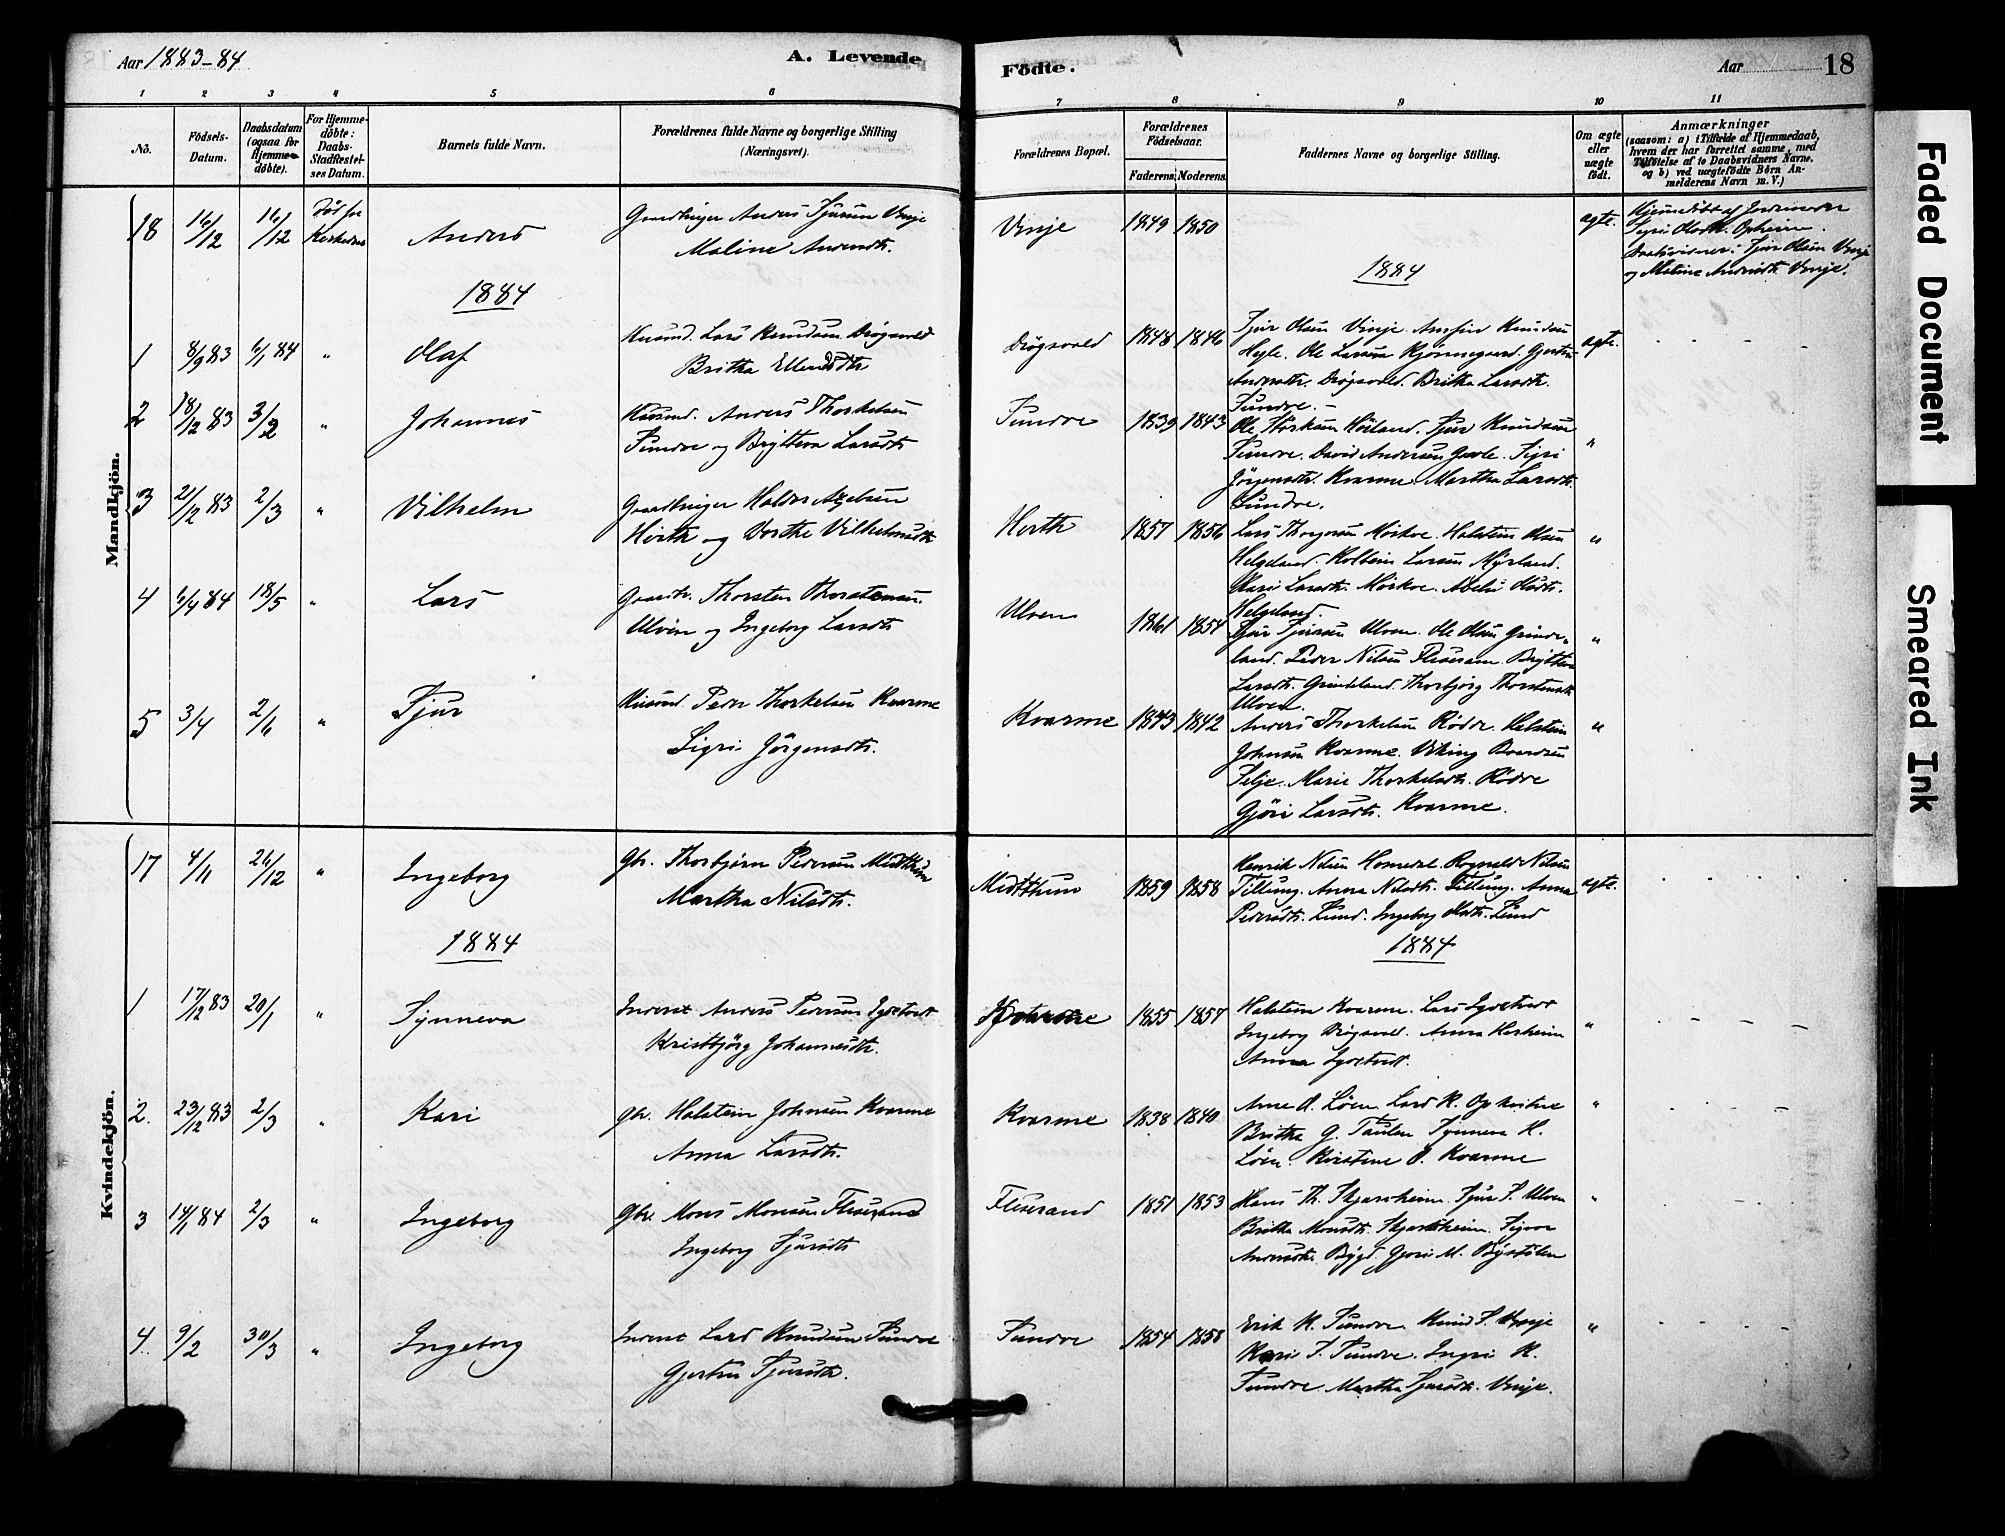 Aar 1883-84
A. Levende
Födte.
Aar
18
1 2 3 4 5 6 7 8 9 10 11
No.
Födsels-Datum.
Daabsdatum (ogsaa for Hjemme-döbte).
For Hjemme-döbte: Daabs-Stadfæstel-ses Datum.
Barnets fulde Navn.
Forældrenes fulde Navne og borgerlige Stilling
(Næringsvei).
Forældrenes Bopæl.
Forældrenes Födselsaar.
Faderens. Moderens.
Faddernes Navne og borgerlige Stilling.
Om ægte eller uægte födt.
Anmærkninger
(saasom: a) i Tilfælde af Hjemmedaab,
hvem der har forrettet samme, med
Tilföielse af to Daabsvidners Navne.
og b) ved uægtefödte Börn An-
melderens Navn m. V.)
Mandkjön.
18 16/12 16/12 Död før Anders
Gaardbruger Anders Sjursen Vinje
Maline Andersdtr.
Vinje 1849 1850 ægte.
Hjemmedöbt af Jordemoder
Sigri Olsdtr. Opheim.
Daabsvidner: Sjur Olsen Vinje
og Maline Andersdtr. Vinje.
1884
1884
1 8/9 83 6/1 84 " Olaf
Husmd. Lars Knudsen Drögsvold
Britha Ellendsdtr
Drögsvold 1848 1846
Sjur Olsen Vinje. Knudsen
Hegle. Ole Larsen
Andersdtr. Drögsvold. Britha Larsdtr.
Sundve.
ægte.
2 18/12 83 3/2 " Johannes
Husmd. Anders Thorkelsen
Sundve og Brytteva Larsdtr
Sundve 1839 1843
Sjur Knudsen
Sundve. David Andersen Sigri
Jörgensdtr. Kvarme. Martha Larsdtr.
Sundve.
"
3 21/12 83 2/3 " Vilhelm
Gaardbruger Haldor Axelsen
Hirth og Dorthe Vilhelmsdtr
Hirth 1857 1856
Lars Mörkve. Halstein Olsen
Helgeland. Kolbein Larsen Myrland.
Mari Larsdtr. Mörkve. Olsdtr.
Helgeland.
"
4 6/4 84 18/5 " Lars
Gaardbr. Thorsten Thorstensen
Ulven og Ingeborg Larsdtr
Ulven 1861 1854
Sjur Sjursen Ulven. Ole Olsen Grinde-
land. Peder Nilsen Fliseram. Brytteva
Larsdtr. Grindeland. Thorbjörg Thorstensdtr
Ulven.
"
5 3/4 2/6 " Sjur
Husmd. Peder Thorkelsen Kvarme
Sigri Jörgensdtr.
Kvarme 1843 1842
Anders Thorkelsen Rödve. Halstein
Johnsen Kvarme. Viking Baardsen
Selje. Marie Thorkelsdtr. Rödve
Gjöri Larsdtr. Kvarme.
"
Kvindekjön.
17 4/11 26/12 " Ingeborg
Gbr. Thorbjörn Pedersen Midtthun
Martha Nilsdtr.
Midtthun 1859 1858
Henrik Nilsen Homedal. Rognald Nilsen
Tillung. Anna Nilsdtr. Tillung. Anna
Pedersdtr. Lund. Ingeborg Olsdtr. Lund
ægte.
1884
1884
1 17/12 83 20/1 " Synneva
Inderst Anders Pedersen
Kristbjörg Johannesdtr.
1855 1857
Halstein Kvarme. Lars
Ingeborg Drögsvold. Anna
Anna
"
2. 23/12 83 2/3 " Kari
Gbr. Halstein Johnsen Kvarme
Anna Larsdtr.
Kvarme 1838 1840
Arne A. Löen. Lars K.
Britha G. Taulen Synneva H.
Löen. Kirstine O. Kvarme
"
3 14/1 84 2/3 " Ingeborg
Gbr. Mons Monsen Fliserand
Ingeborg Sjursdtr
Fliserand 1851 1853
Hans Th. Skjerveheim. Sjur S. Ulven
Britha Monsdtr. Skjerveheim. Sigvor
Andersdtr. Bygd. Gjöri M. Byrstölen
"
4. 9/2 30/3 " Ingeborg
Inderst Lars Knudsen Sundve
Gjertru Sjursdtr.
Sundve 1854 1858
Erik K. Sundve. Knud S. Vinje
Kari S. Sundve. Ingri K.
Sundve. Martha Sjursdtr. Vinje.
"
Faded Document
Smeared Ink